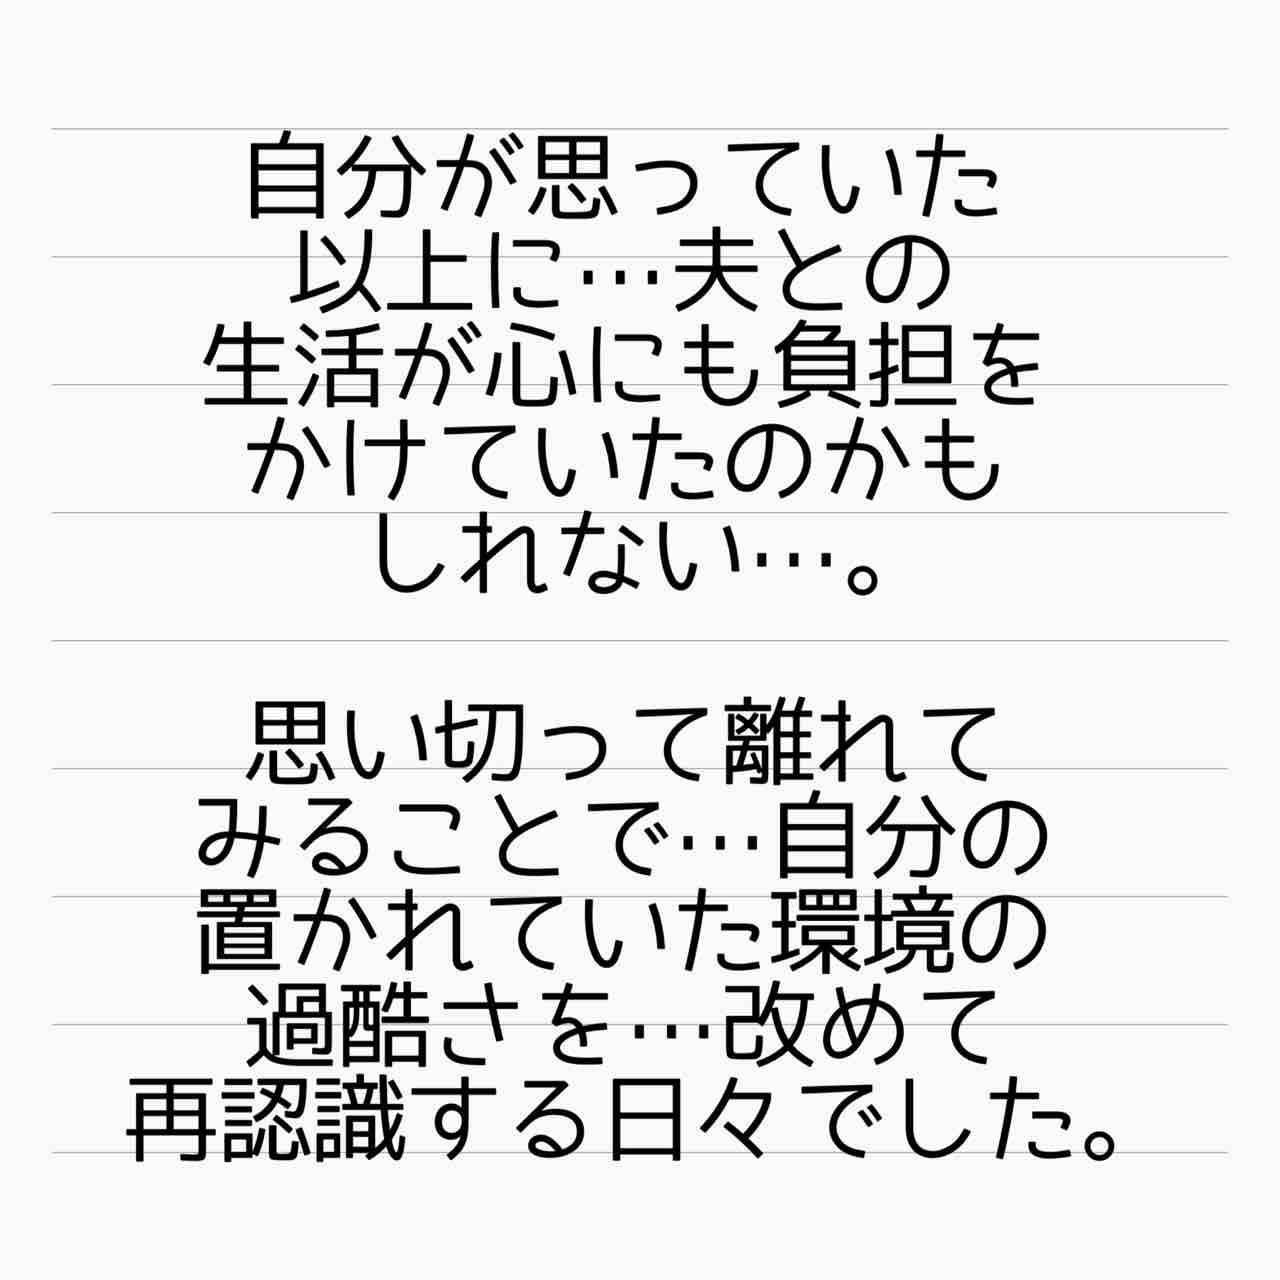 自分が思っていた
以上に…夫との
生活が心にも負担を
かけていたのかも
しれない…。
思い切って離れて
みることで…自分の
置かれていた環境の
過酷さを…改めて
再認識する日々でした。